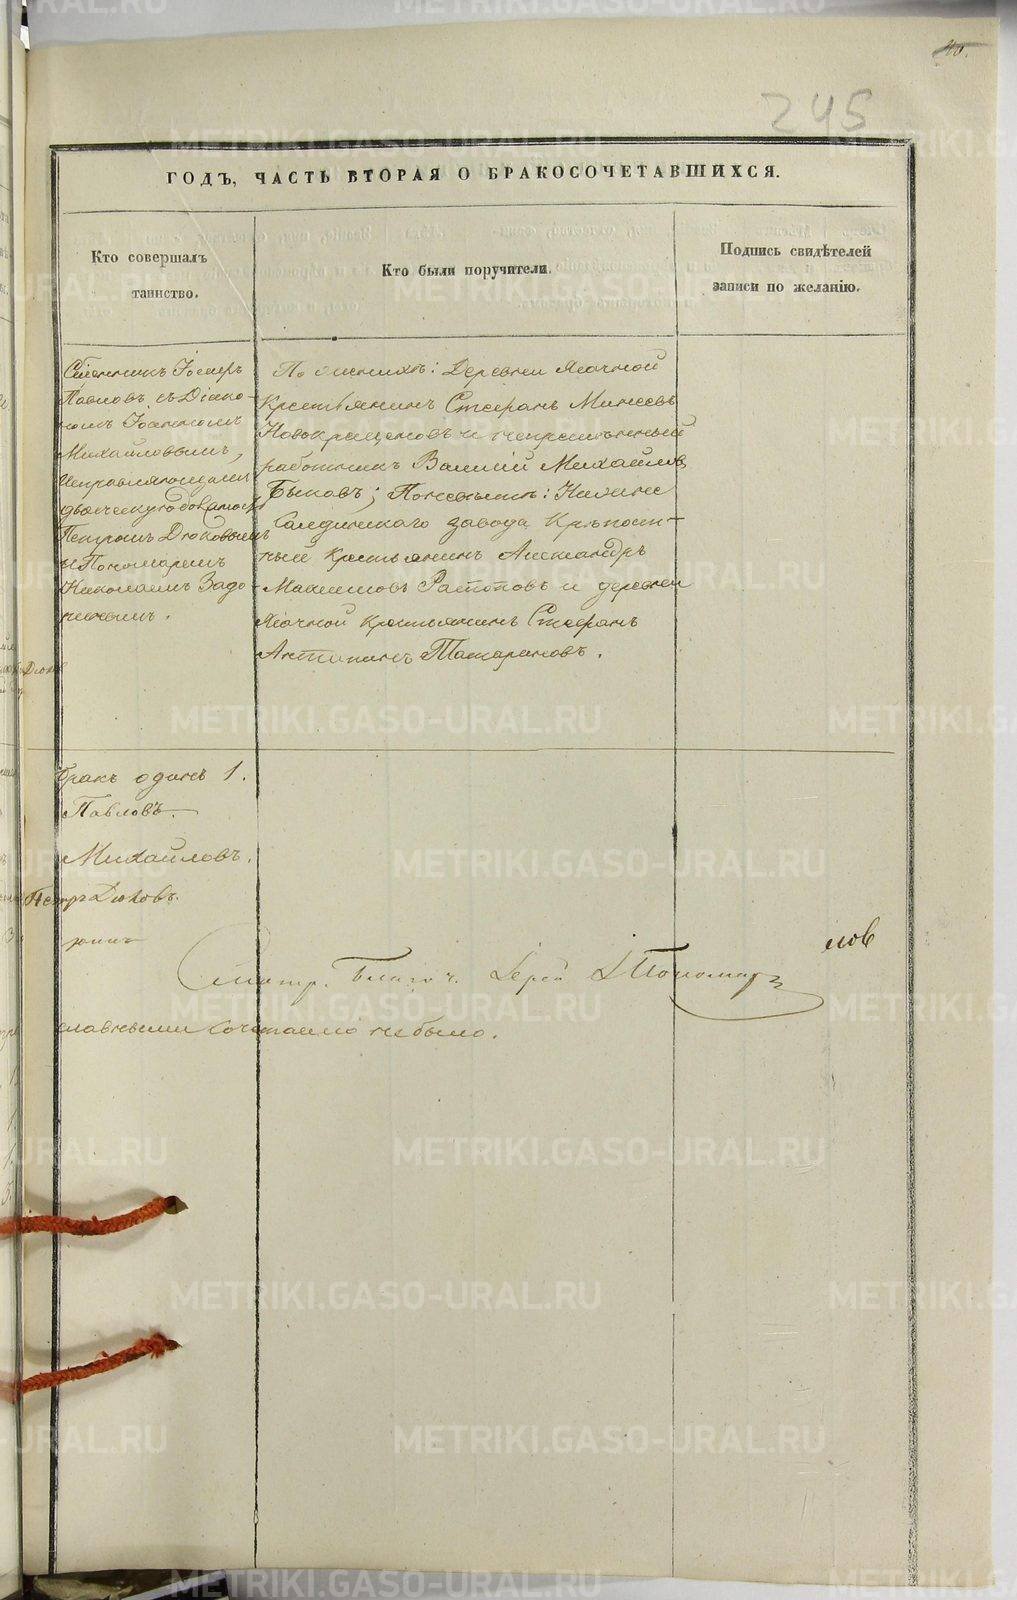 40.
245
ГОДЪ, ЧАСТЬ ВТОРАЯ О БРАКОСОЧЕТАВШИХСЯ.
Кто совершалъ
таинство.
Кто были поручители.
Подпись свидѣтелей
записи по желанію.
Священникъ Іосифъ
Павловъ съ Діако-
номъ Іоанномъ
Михайловымъ,
Исправляющими
дьяческую должность
Петромъ Дюковымъ
и Пономаремъ
Николаемъ Задо-
По женихѣ: Деревни Ясачной
Крестьянинъ Стефанъ Минеевъ
Новокрещеновъ и непремѣнный
работникъ Василій Михайловъ
Быковъ; По невѣстѣ: Нижне
Салдинскаго завода Крѣпост-
ный крестьянинъ Александръ
Максимовъ и деревни
Ясачной крестьянинъ Стефанъ
Антипинъ Татариновъ.
Дюков
Бракъ одинъ 1.
Павловъ.
Михайловъ.
Петръ Дюковъ.
Смотр. Благоч. Іерей Пономар
славными сочетаніа не было.
METRIKI.GASO-URAL.RU